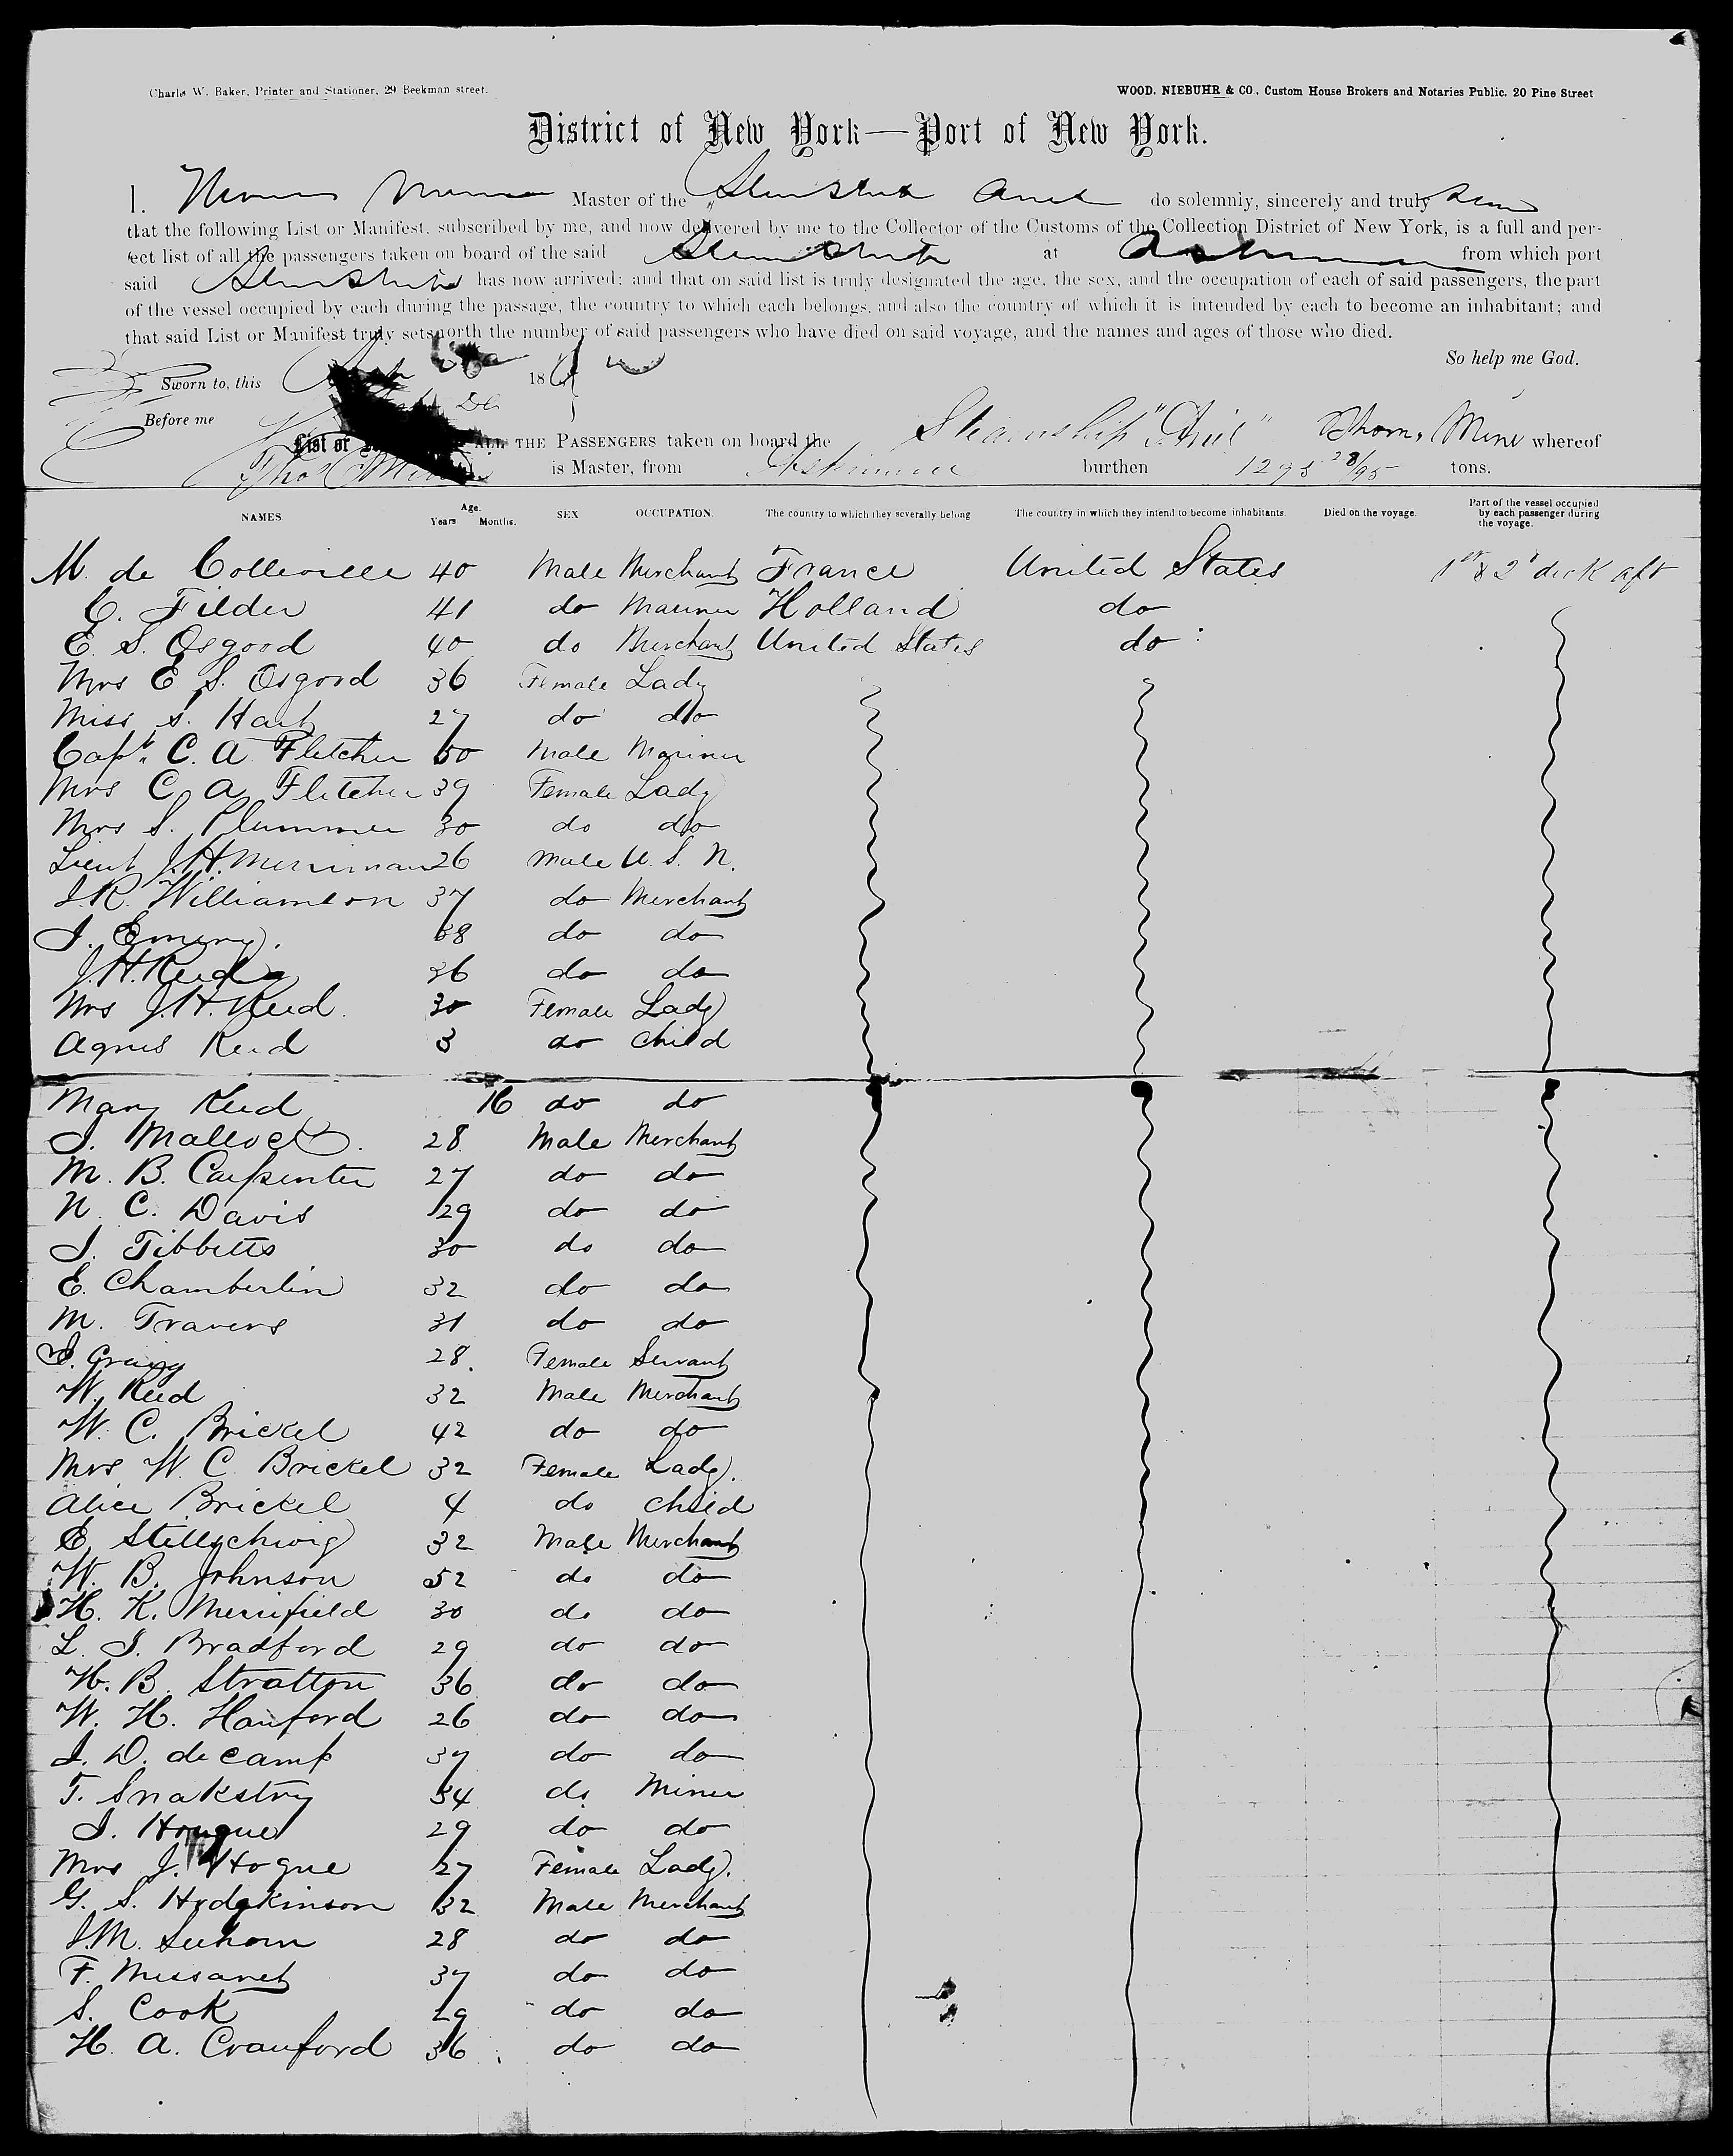 Charles W. Baker, Printer and Stationer, 29 Beekman street.
WOOD, NIEBUHR & CO., Custom House Brokers and Notaries Public, 20 Pine Street
District of New York—Port of New York.
I, Master of the Steamship Ariel do solemnly, sincerely and truly
that the following List or Manifest, subscribed by me, and now delivered by me to the Collector of the Customs of the Collection District of New York, is a full and per-
fect list of all the passengers taken on board of the said Steamship at Aspinwall from which port
said Steamship has now arrived; and that on said list is truly designated the age, the sex, and the occupation of each of said passengers, the part
of the vessel occupied by each during the passage, the country to which each belongs, and also the country of which it is intended by each to become an inhabitant; and
that said List or Manifest truly sets forth the number of said passengers who have died on said voyage, and the names and ages of those who died.
So help me God.
Sworn to, this 18
Before me
List or ALL THE PASSENGERS taken on board the Steamship "Ariel" Thom. Mine whereof
is Master, from Aspinwall burthen 1295 28/95 tons.
NAMES Age. Years. Months. SEX OCCUPATION. The country to which they severally belong The country in which they intend to become inhabitants. Died on the voyage. Part of the vessel occupied by each passenger during the voyage.
M. de Colleville 40 Male Merchant France United States 1st & 2d deck aft
C. Filder 41 do Mariner Holland do
E. S. Osgood 40 do Merchant United States do
Mrs E. S. Osgood 36 Female Lady
Miss S. Hart 27 do do
Capt. C. A. Fletcher 50 Male Mariner
Mrs C. A. Fletcher 39 Female Lady
Mrs S. Plummer 30 do do
Lieut J. H. Merriman 26 Male U. S. N.
J. R. Williamson 37 do Merchant
J. Emery 38 do do
J. H. Reid 36 do do
Mrs J. H. Reid 30 Female Lady
Agnes Reid 3 do Child
Mary Reid 16 do do
J. Mallock 28 Male Merchant
M. B. Carpenter 27 do do
N. C. Davis 29 do do
J. Tibbetts 30 do do
E. Chamberlin 32 do do
M. Travers 31 do do
J. Gragg 28 Female Servant
W. Reid 32 Male Merchant
W. C. Brickel 42 do do
Mrs W. C. Brickel 32 Female Lady
Alice Brickel 4 do Child
E. Stellschwig 32 Male Merchant
W. B. Johnson 52 do do
H. K. Merrifield 30 do do
L. J. Bradford 29 do do
W. B. Stratton 36 do do
W. H. Hanford 26 do do
J. D. de Camp 37 do do
T. Snakstry 34 do Miner
J. Hougue 29 do do
Mrs J. Hogue 27 Female Lady
G. S. Hodgkinson 32 Male Merchant
J. M. Seehorn 28 do do
F. Missanet 37 do do
S. Cook 29 do do
H. A. Crawford 36 do do